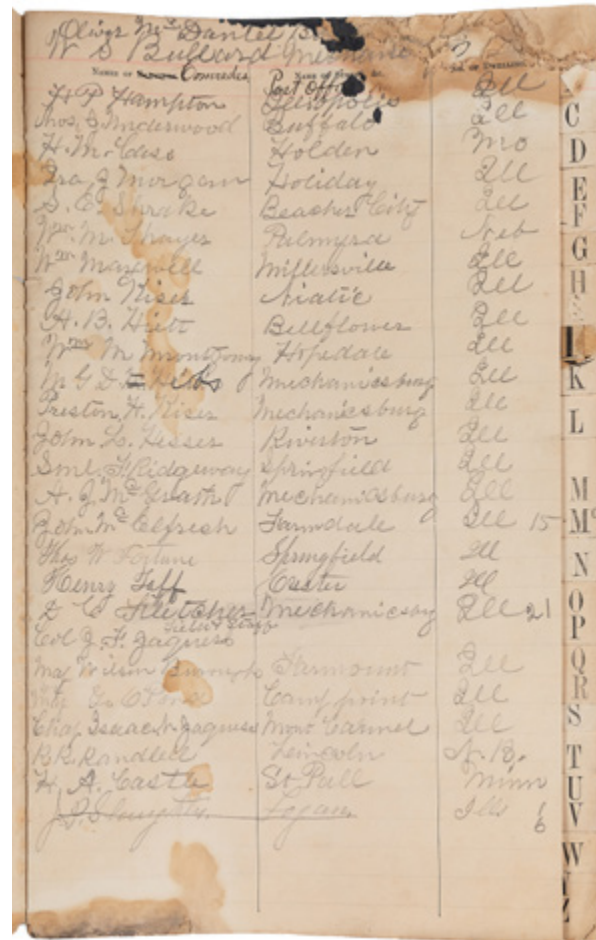 Oliver Mc Daniel
W S Bullard Mechanic
Names of Comrades Name of Post Office
F P Hampton Illiopolis Ill
Thos. S. Underwood Buffalo Ill
H. M. Case Holden Mo
Ira J Morgan Holiday Ill
S. E. Shrake Beacher City Ill
Wm. M. Thayer Palmyra Neb
Wm Maxwell Millersville Ill
John Kiser Niatic Ill
H. B. Hiett Bellflower Ill
Wm M Montgomy Hopedale Ill
M G D Hibs Mechanicsburg Ill
Preston H. Kiser Mechanicsburg Ill
John L. Hesser Riverton Ill
Sml. F. Ridgeway Springfield Ill
A. J. Mc Grath Mechanicsburg Ill
John Mc Elfresh Farmdale Ill 15
Thos W Fortune Springfield Ill
Henry Taff Custer Ill
D C Fletcher Mechanicsbg Ill 21
Field & Staff
Col J. F. Jaquess
Maj Wilson Burroughs Farmount Ill
Camp point Ill
Chap. Isaac N. Jaquess Mont Carmel Ill
B R Randlett Lincoln N. B.
H. A. Castle St Pall Minn
Logan Ills 6
C
D
E
F
G
H
I
K
L
M
Mc
N
O
P
Q
R
S
T
U
V
W
Y
Z